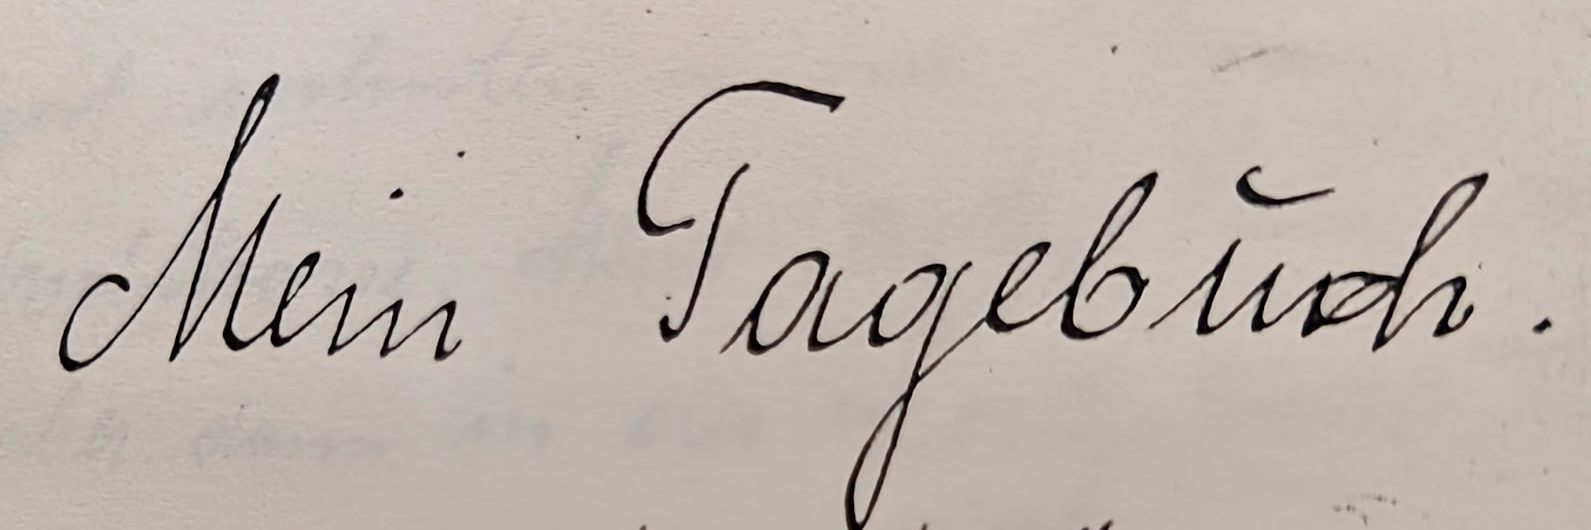 Mein Tagebuch.